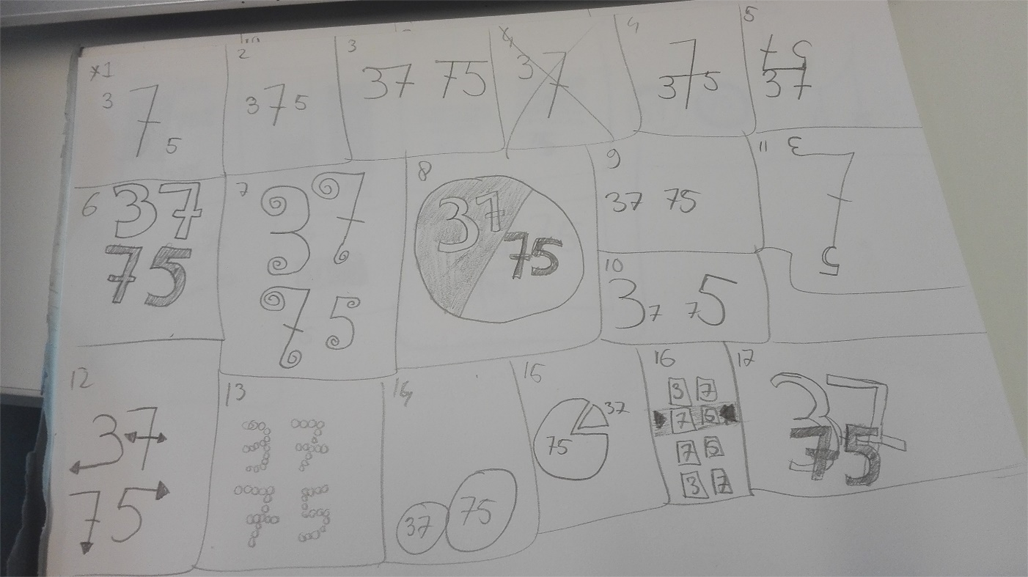 *1
3 7 5
2
375
3
37 75
4
37
4
7
3 5
5
75
37
6
37
75
7
37
75
8
37
75
9
37 75
10
37 75
11
3
7
5
12
37
75
13
37
75
14
37 75
15
37
75
16
37
75
75
37
17
37
75